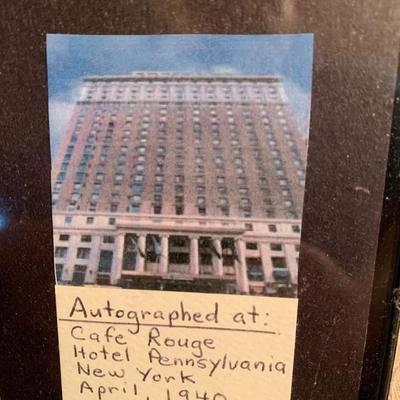 Autographed at:
Cafe Rouge
Hotel Pennsylvania
New York
April, 1940